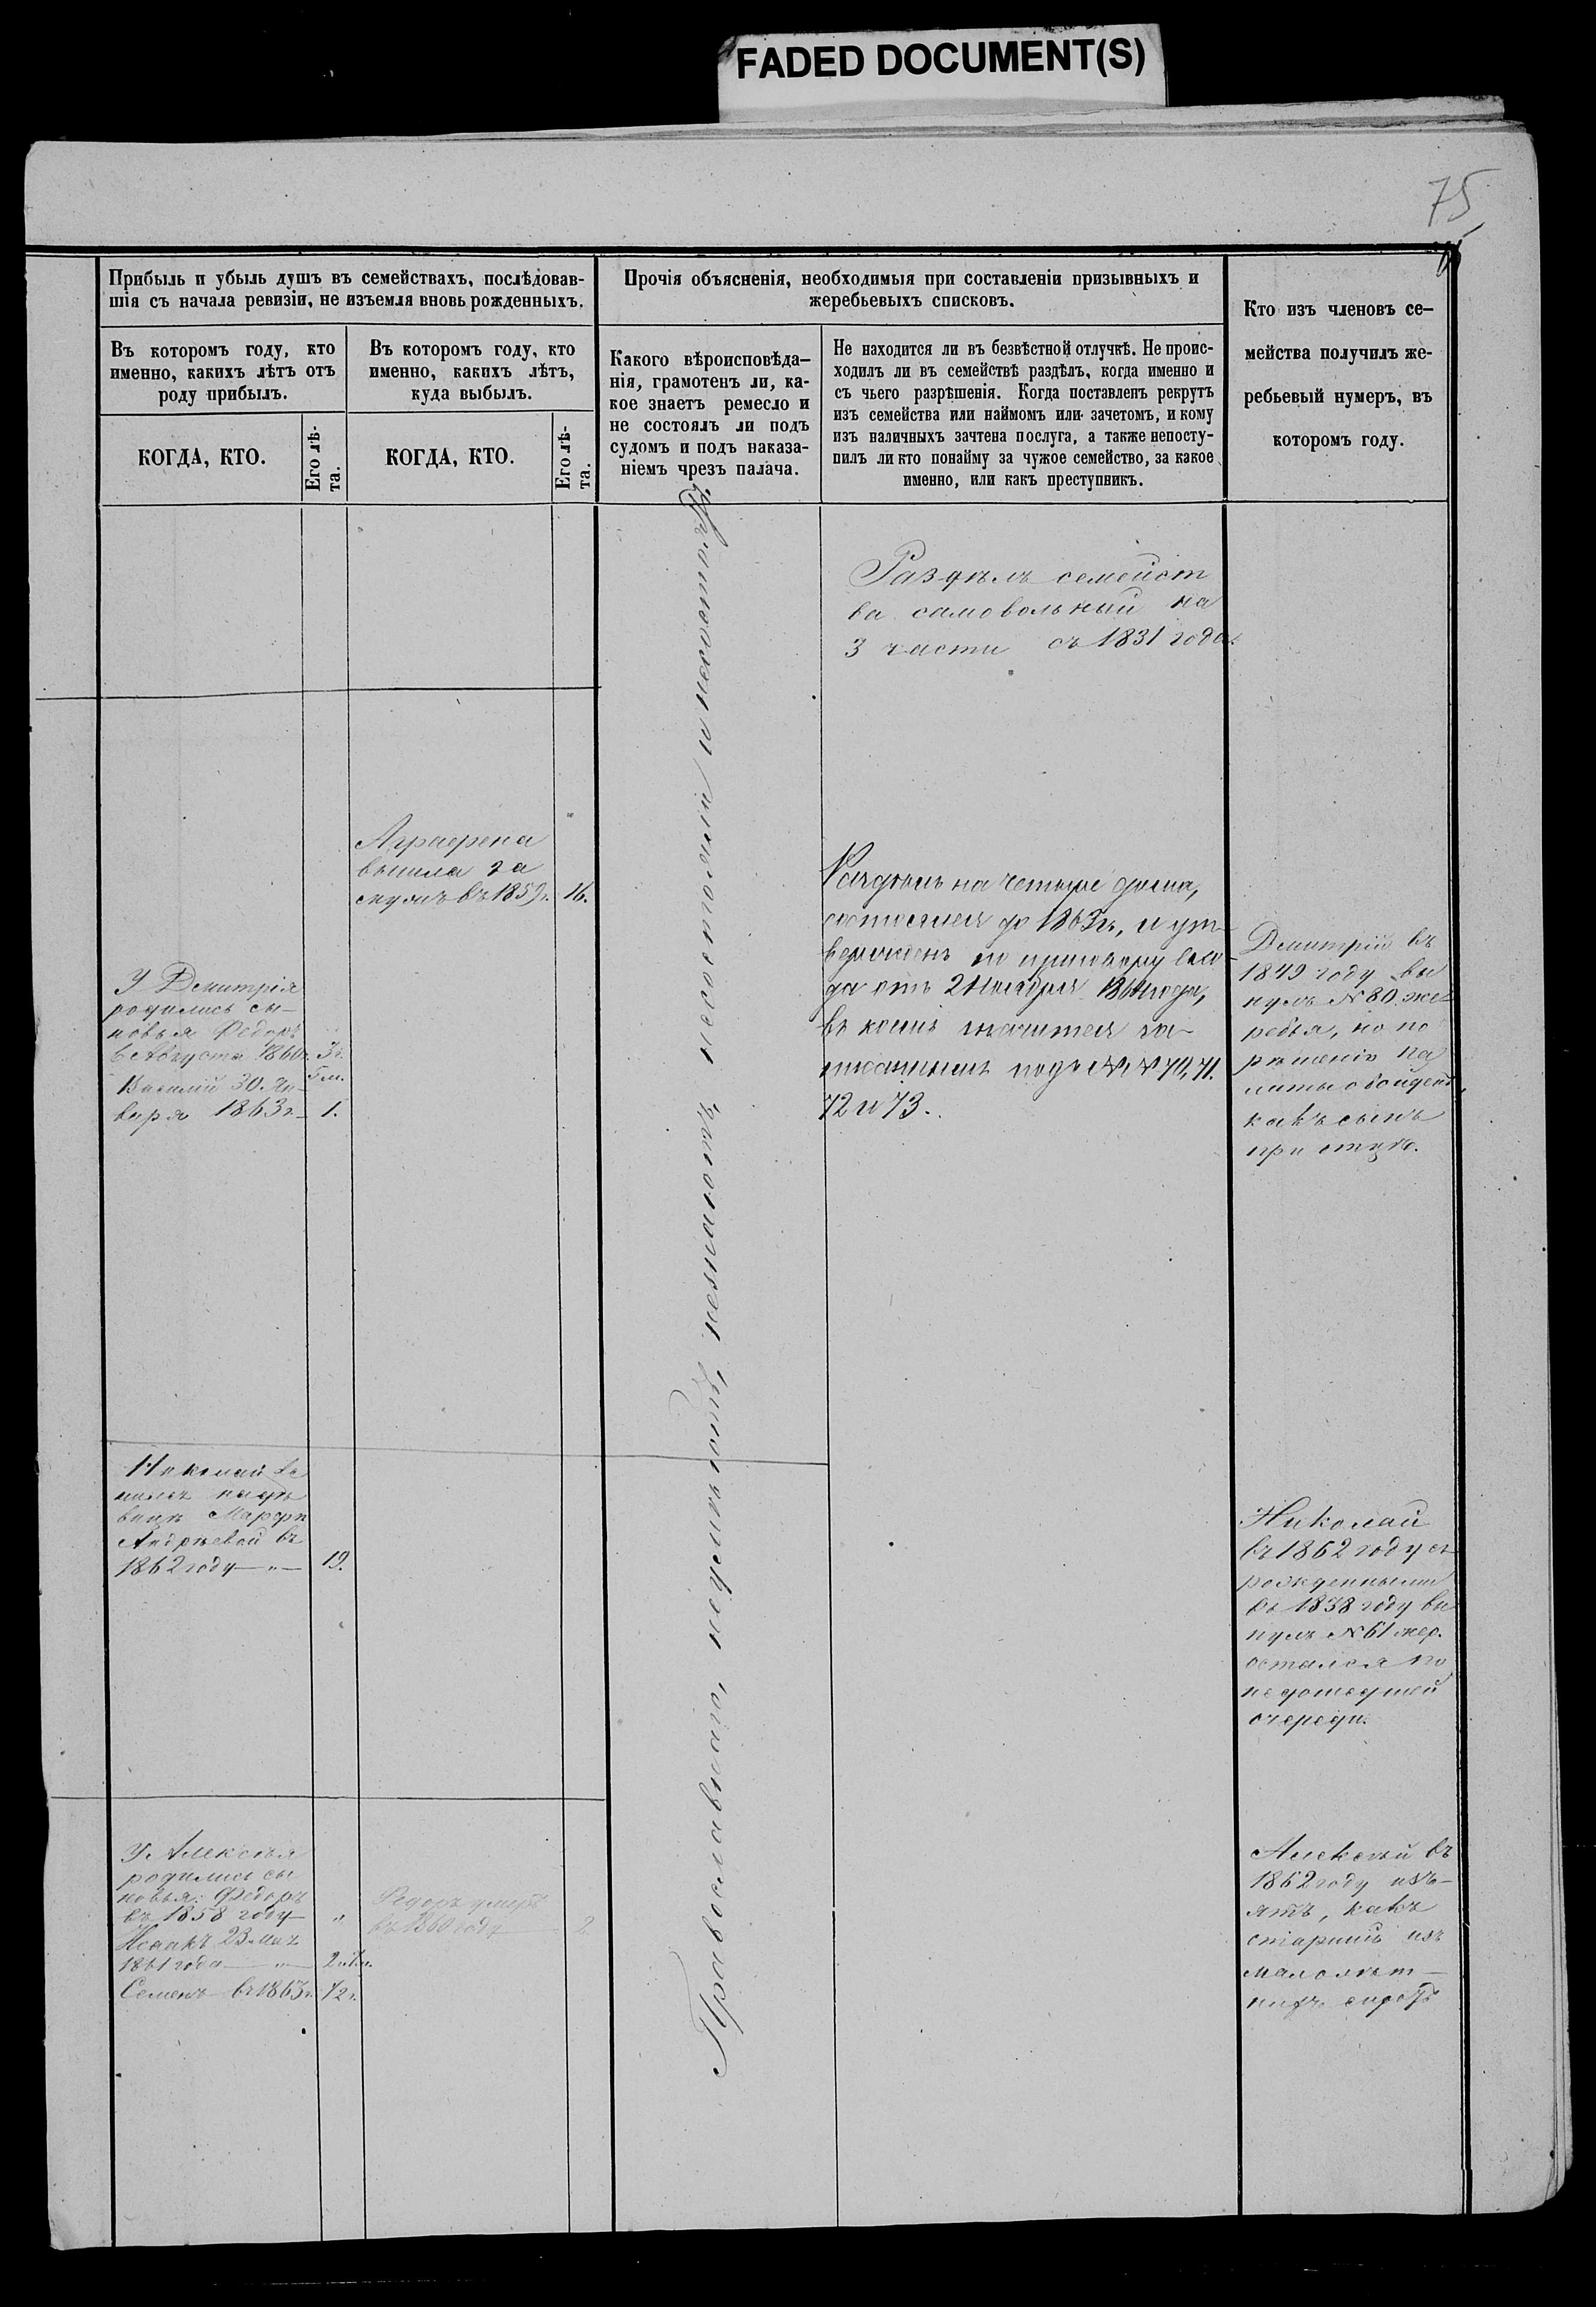 FADED DOCUMENT(S)
75
Прибыль и убыль душъ въ семействахъ, послѣдовав-
шія съ начала ревизіи, не изъемля вновь рожденныхъ.
Прочія объясненія, необходимыя при составленіи призывныхъ и
жеребьевыхъ списковъ.
Кто изъ членовъ се-
мейства получилъ же-
ребьевый нумеръ, въ
которомъ году.
Въ которомъ году, кто
именно, какихъ лѣтъ отъ
роду прибылъ.
Въ которомъ году, кто
именно, какихъ лѣтъ,
куда выбылъ.
Какого вѣроисповѣда-
нія, грамотенъ ли, ка-
кое знаетъ ремесло и
не состоялъ ли подъ
судомъ и подъ наказа-
ніемъ чрезъ палача.
Не находится ли въ безвѣстной отлучкѣ. Не проис-
ходилъ ли въ семействѣ раздѣлъ, когда именно и
съ чьего разрѣшенія. Когда поставленъ рекрутъ
изъ семейства или наймомъ или зачетомъ, и кому
изъ наличныхъ зачтена послуга, а также непосту-
пилъ ли кто понайму за чужое семейство, за какое
именно, или какъ преступникъ.
КОГДА, КТО.
Его лѣ-
та.
КОГДА, КТО.
Его лѣ-
та.
Раздѣлъ семейст
ва самовольный на
3 части съ 1831 года.
Аграфена
вышла за
мужъ въ 1859г. 16.
Раздѣлъ на четыре дома,
состоялся до 1863г., и ут-
вержденъ по приговору
да отъ 2 Ноября года,
въ коемъ значится за-
писаннымъ подъ №№ 70, 71.
72 и 73.
У Дмитрія
родились сы-
новья Федоръ
6 Августа 1860г. 3г.
5м.
Василій 30. Ян-
варя 1863г. 1.
Дмитрій въ
1849 году вы
нулъ №80 же
ребья, но по
рѣшенію Па
латы обойденъ,
какъ сынъ
при отцѣ.
Православнаго, неумѣютъ, незнаютъ, несостояли и несостоятъ.
Николай
Марфы
Андрѣевой въ
1862 году 19.
Николай
въ 1862 году съ
рожденными
въ 1838 году вы
нулъ №61 жер.
остался по
недошедшей
очереди.
У Алексѣя
родились сы
новья: Федоръ
въ 1858 году "
Исаакъ 23. Мая
1861 года 2
Семенъ въ 1863г. 1/2 г.
Федоръ умеръ
въ 1860 году 2
Алексѣй въ
1862 году изъ-
ятъ, какъ
старшій изъ
малолѣт-
нихъ сиротъ